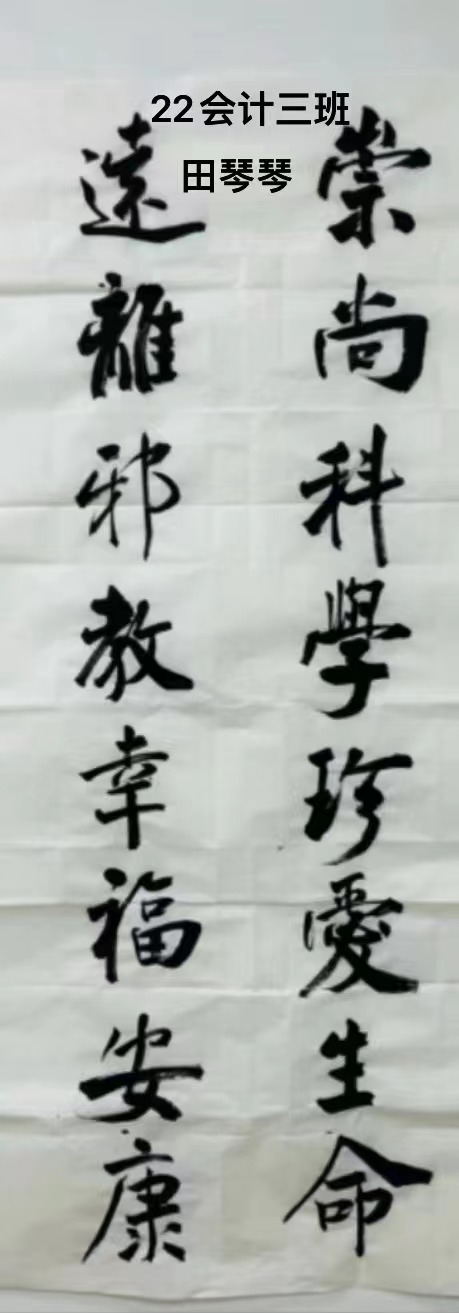 22会计三班
田琴琴
崇尚科學珍愛生命
遠離邪教幸福安康